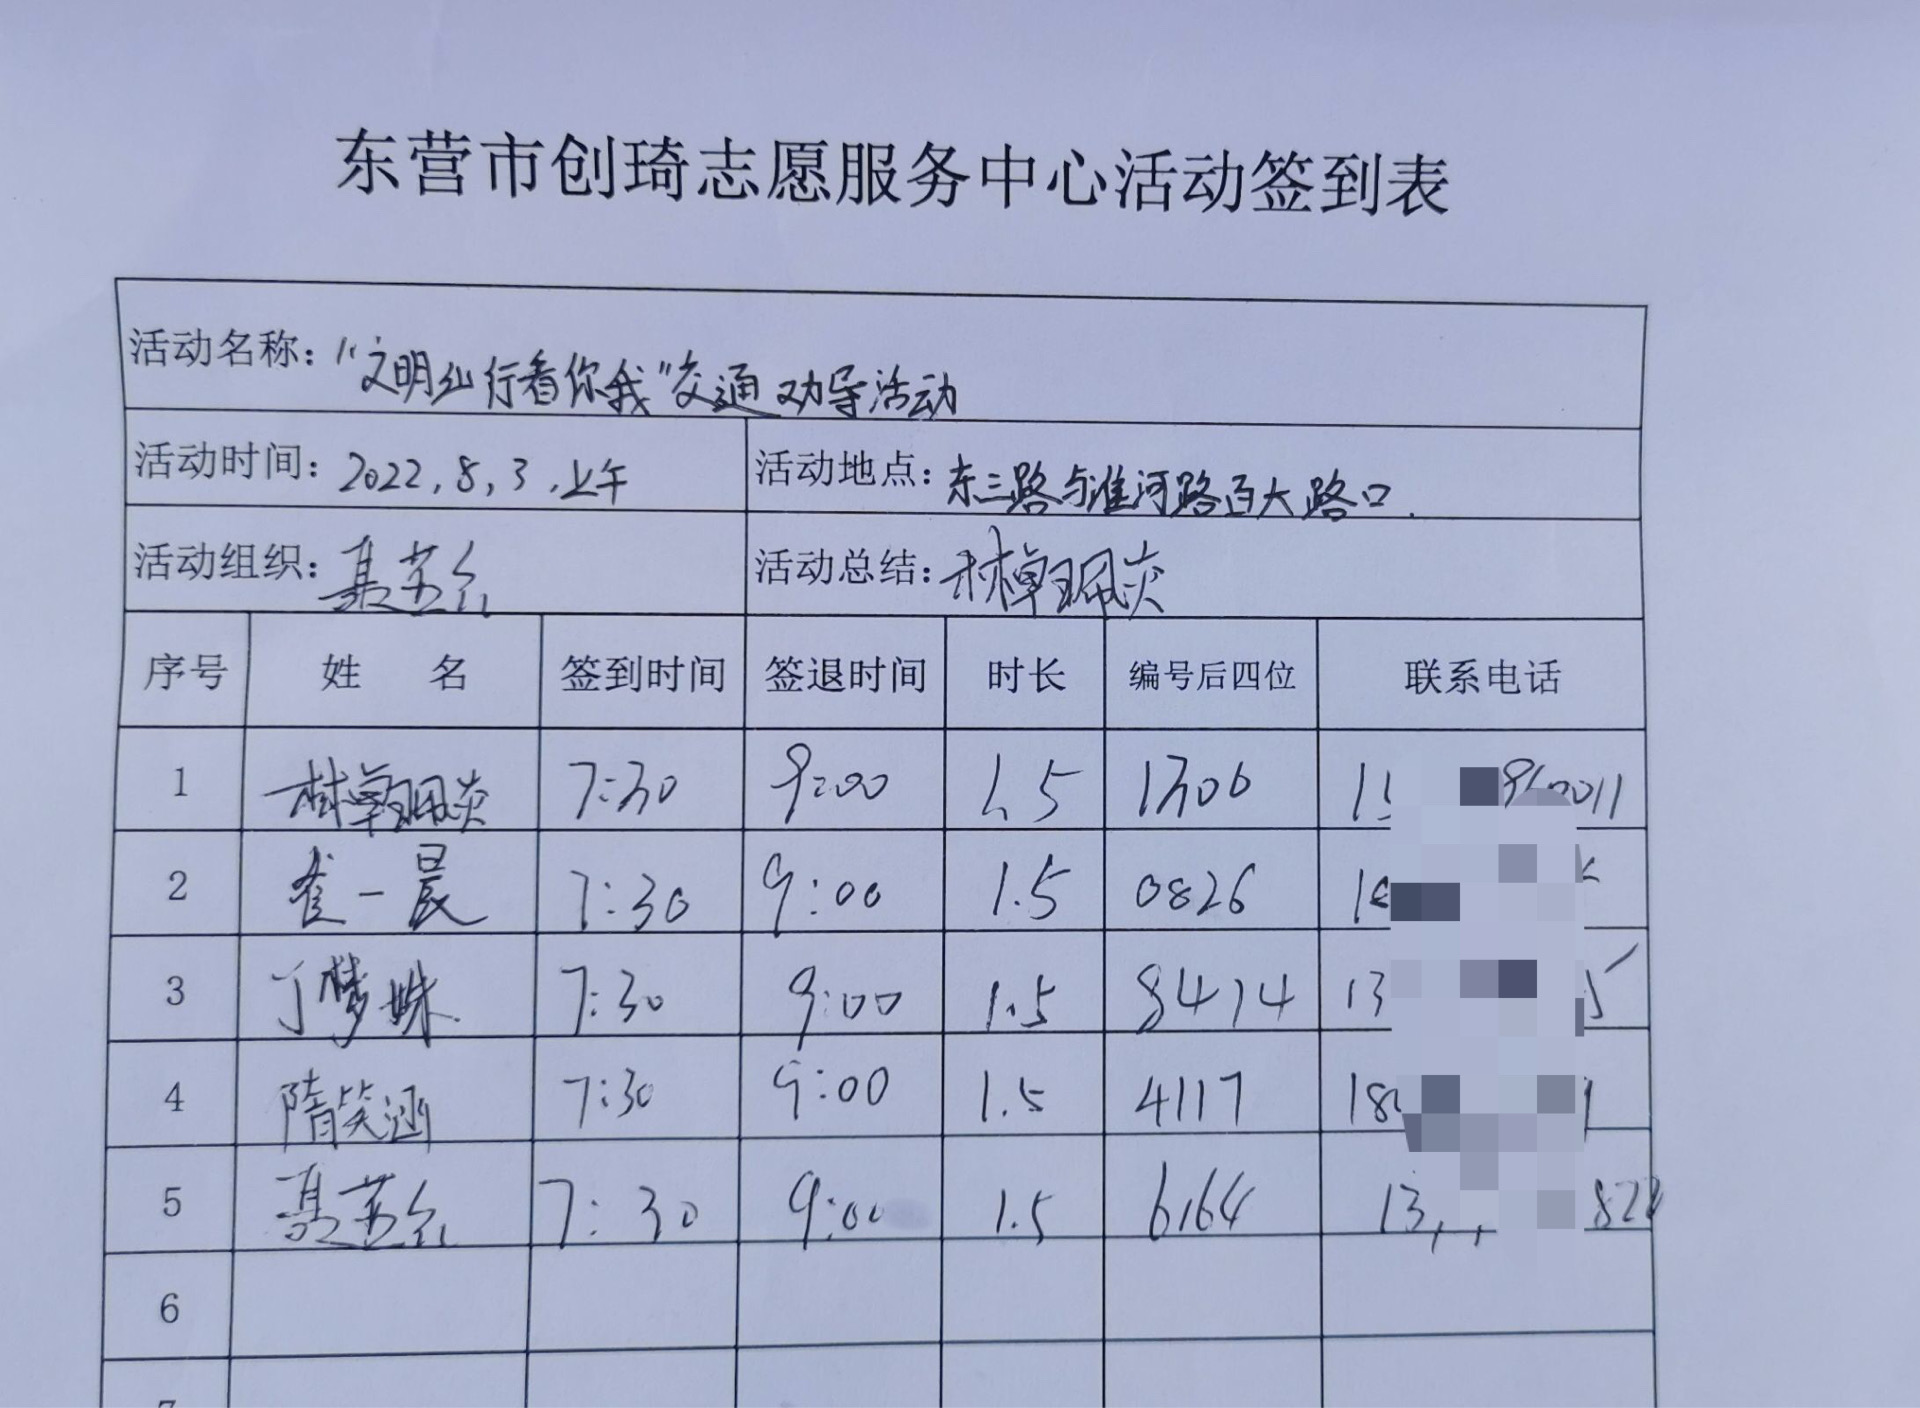 东营市创琦志愿服务中心活动签到表
活动名称："文明出行看你我"交通劝导活动
活动时间：2022.8.3.上午 活动地点：东三路与淮河路百大路口.
活动组织： 活动总结：
序号 姓名 签到时间 签退时间 时长 编号后四位 联系电话
1 7:30 9:00 1.5 1306
2 崔一晨 7:30 9:00 1.5 0826
3 丁梦姝 7:30 9:00 1.5 8474 13
4 隋笑涵 7:30 9:00 1.5 4117 18
5 7:30 9:00 1.5 6164 13
6